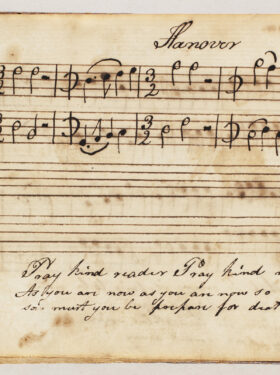 Hanover
3 2 3 2
3 2 3 2
Pray kind reader Pray kind
As you are now as you are now so
so must you be prepare for deat